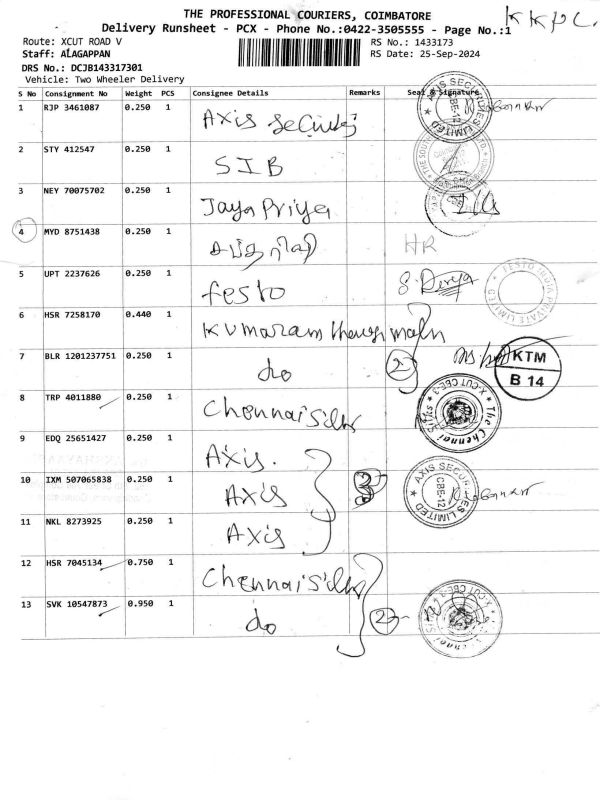 THE PROFESSIONAL COURIERS, COIMBATORE
KKPC.
Delivery Runsheet - PCX - Phone No.:0422-3505555 - Page No.:1
Route: XCUT ROAD V
RS No.: 1433173
Staff: ALAGAPPAN
RS Date: 25-Sep-2024
DRS No.: DCJB143317301
Vehicle: Two Wheeler Delivery
S No Consignment No Weight PCS Consignee Details Remarks Seal & Signature
1 RJP 3461087 0.250 1 Axis Security
AXIS SECURITIES LIMITED CBE-12
2 STY 412547 0.250 1 SIB
3 NEY 70075702 0.250 1 Jaya Priya
4 MYD 8751438 0.250 1 HR
5 UPT 2237626 0.250 1 festo S. Divya
FESTO INDIA PRIVATE LIMITED
6 HSR 7258170 0.440 1 Kumaran
7 BLR 1201237751 0.250 1 do 2
KTM
B 14
8 TRP 4011880 0.250 1 Chennai Silks
The Chennai Silks X-CUT CBE-3
9 EDQ 25651427 0.250 1 Axis.
10 IXM 507065838 0.250 1 Axis 3
AXIS SECURITIES LIMITED CBE-12
11 NKL 8273925 0.250 1 Axis
12 HSR 7045134 0.750 1 Chennai Silks
13 SVK 10547873 0.950 1 do 2